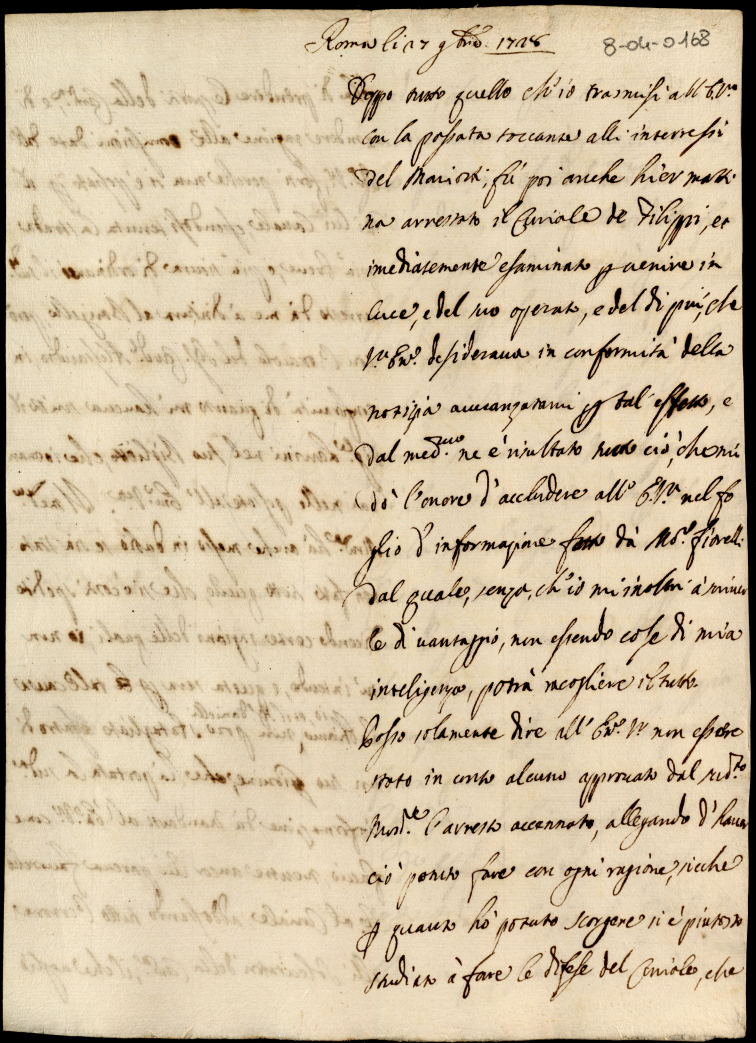 Roma li 27 9bre. 1728
8-04-0168
Doppo tutto quello ch'io trasmisi all' E. Vra
con la passata toccante alli interressi
del Mariotti, fù poi anche hier matti-
na arrestato il Curiale de Filippi, et
imediatemente esaminato p venire in
luce, e del suo operato, e del di più, che
Va. Emza. desiderava in conformità della
notizia avvanzatami p tal' effetto, e
dal medmo ne è risultato tutto ciò, che mi
dò l'onore d'accludere all' E. Va nel fo-
glio d'informazione fatto dà Mor. Fiorelli
dal quale, senza, ch'io mi inoltri à
le di vantaggio, non essendo cose di mia
inteligenza, potrà racogliere il tutto.
Posso solamente dire all' Emza. Va non essere
stato in conto alcuno approvato dal sudto
l'arresto accennato, allegando d'haver
ciò potuto fare con ogni ragione, sicche
p quanto hò potuto scorgere si è piutosto
studiato à fare le difese del Curiale, che